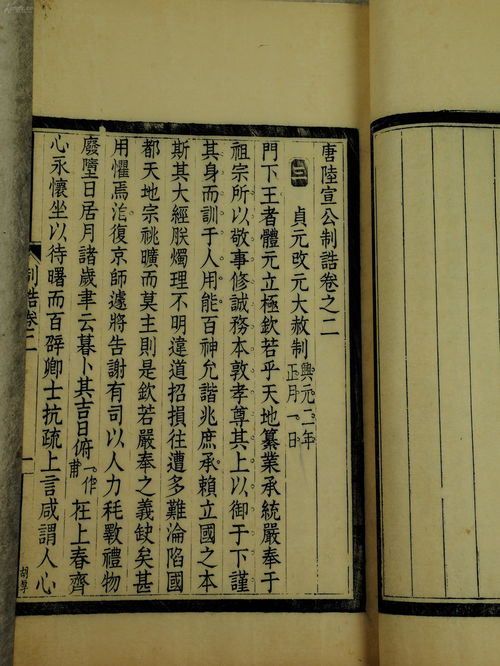 唐陸宣公制誥卷之二
貞元改元大赦制興元二年正月一日
門下王者體元立極欽若乎天地纂業承統嚴奉于
祖宗所以敬事修誠務本敦孝尊其上以御于下謹
其身而訓于人用能百神允諧兆庶承賴立國之本
斯其大經朕燭理不明違道招損往遭多難淪陷國
都天地宗祧曠而莫主則是欽若嚴奉之義缺矣甚
用懼焉洎復京師遽將告謝有司以人力耗斁禮物
廢墮日居月諸歲聿云暮卜其吉日俯一作甫在上春齊
心永懷坐以待曙而百辟卿士抗疏上言咸謂人心
制誥卷二
一